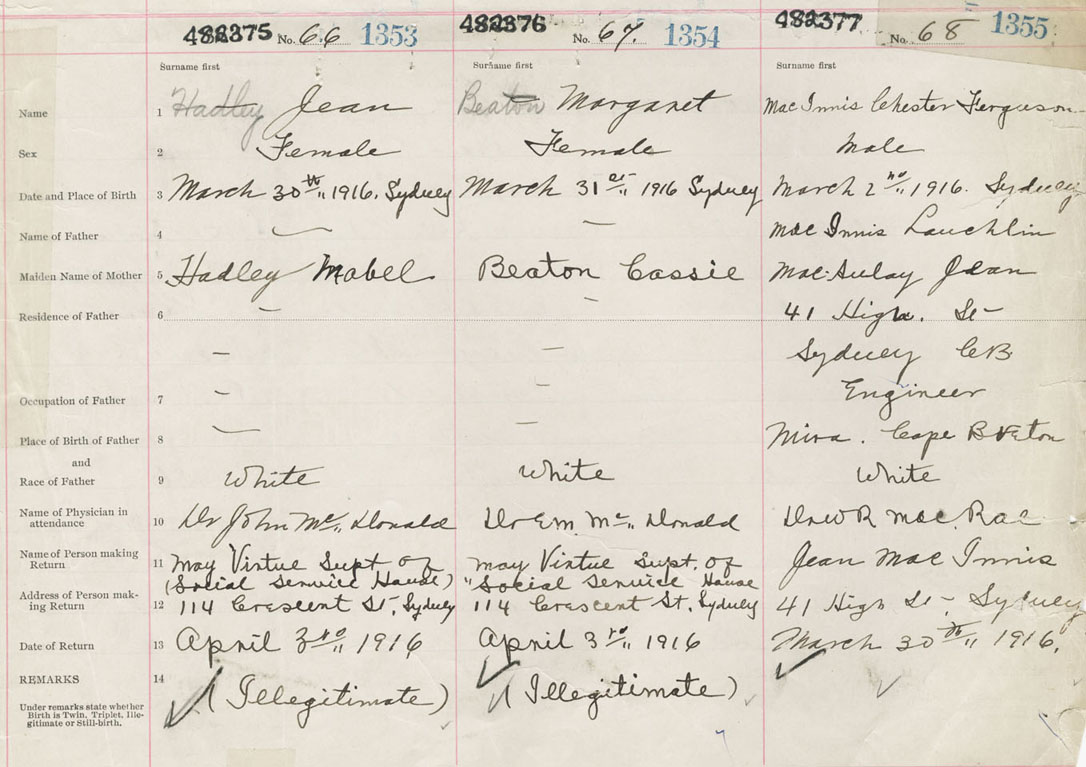 482375 No. 66 1353 482376 No. 67. 1354 482377 No. 68 1355
Surname first Surname first Surname first
Name 1 Hadley Jean Beaton Margaret Mac Innis Chester Ferguson
Sex 2 Female Female Male
Date and Place of Birth 3 March 30th 1916. Sydney March 31st 1916 Sydney March 2nd 1916. Sydney
Name of Father 4 — — Mac Innis Lauchlin
Maiden Name of Mother 5 Hadley Mabel Beaton Cassie Mac Aulay Jean
Residence of Father 6 — — 41 High. St
— — Sydney CB
Occupation of Father 7 — — Engineer
Place of Birth of Father 8 — — Mira. Cape Breton
and
Race of Father 9 White White White
Name of Physician in
attendance 10 Dr John Mc Donald Dr E.M. Mc Donald Dr W R Mac Rae
Name of Person making
Return 11 May Virtue Supt of May Virtue Supt. of Jean Mac Innis
(Social Service House) "Social Service House
Address of Person mak-
ing Return 12 114 Crescent St. Sydney 114 Crescent St. Sydney 41 High St, Sydney
Date of Return 13 April 3rd 1916 April 3rd 1916 March 30th 1916.
REMARKS 14 (Illegitimate) (Illegitimate)
Under remarks state whether
Birth is Twin, Triplet, Ille-
gitimate or Still-birth.